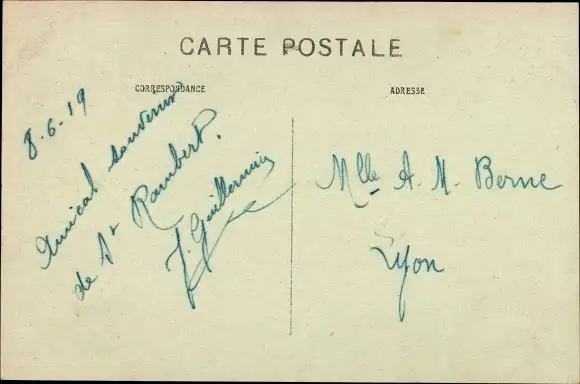 CARTE POSTALE
CORRESPONDANCE
ADRESSE
8-6-19
Amical souvenir
de St Rambert.
J. Guillermin
Mlle A. M. Berne
Lyon